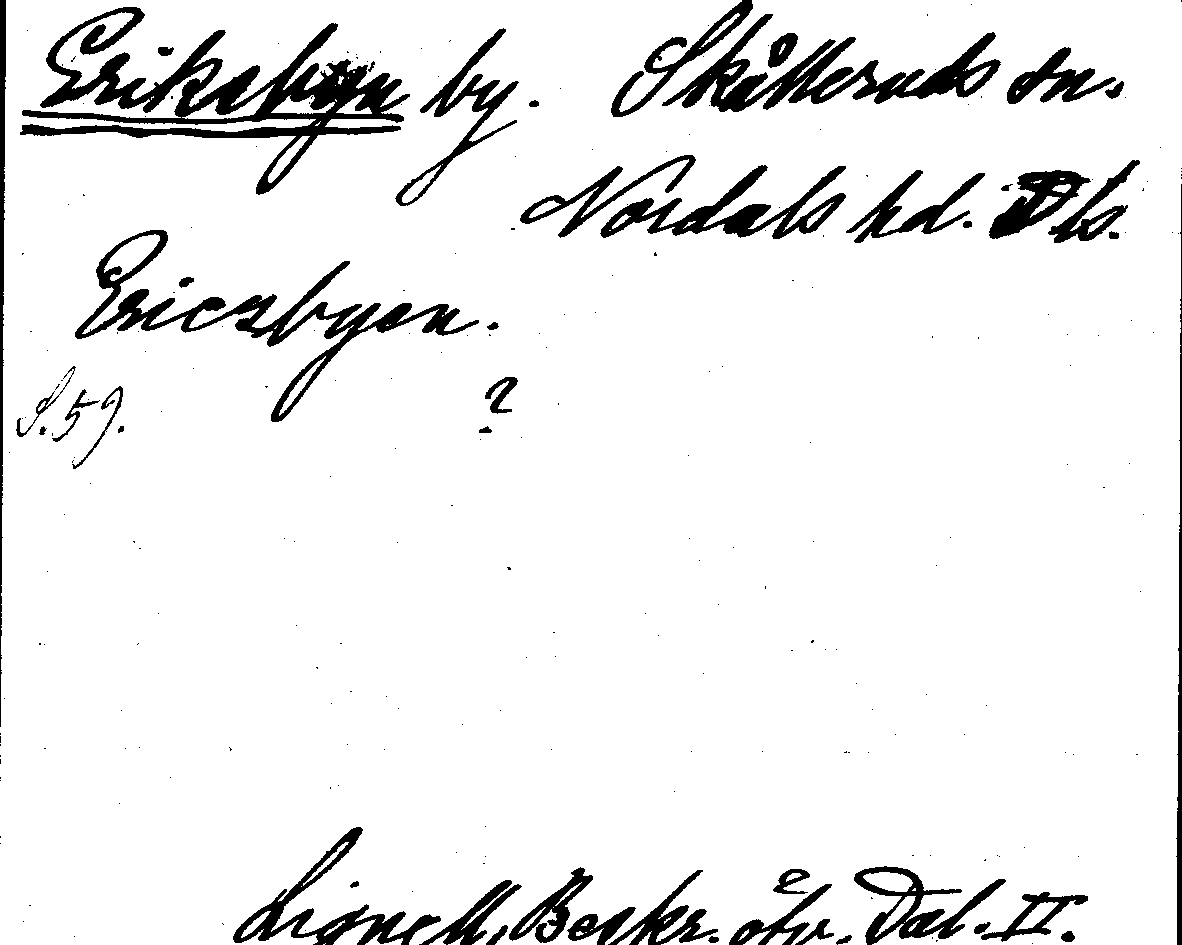 Eriksbyn by. Skålleruds sn.
Nordals hd. Dls.
Ericsbyen.
S. 59. ?
Lignell, Beskr. öfv. Dal. II.